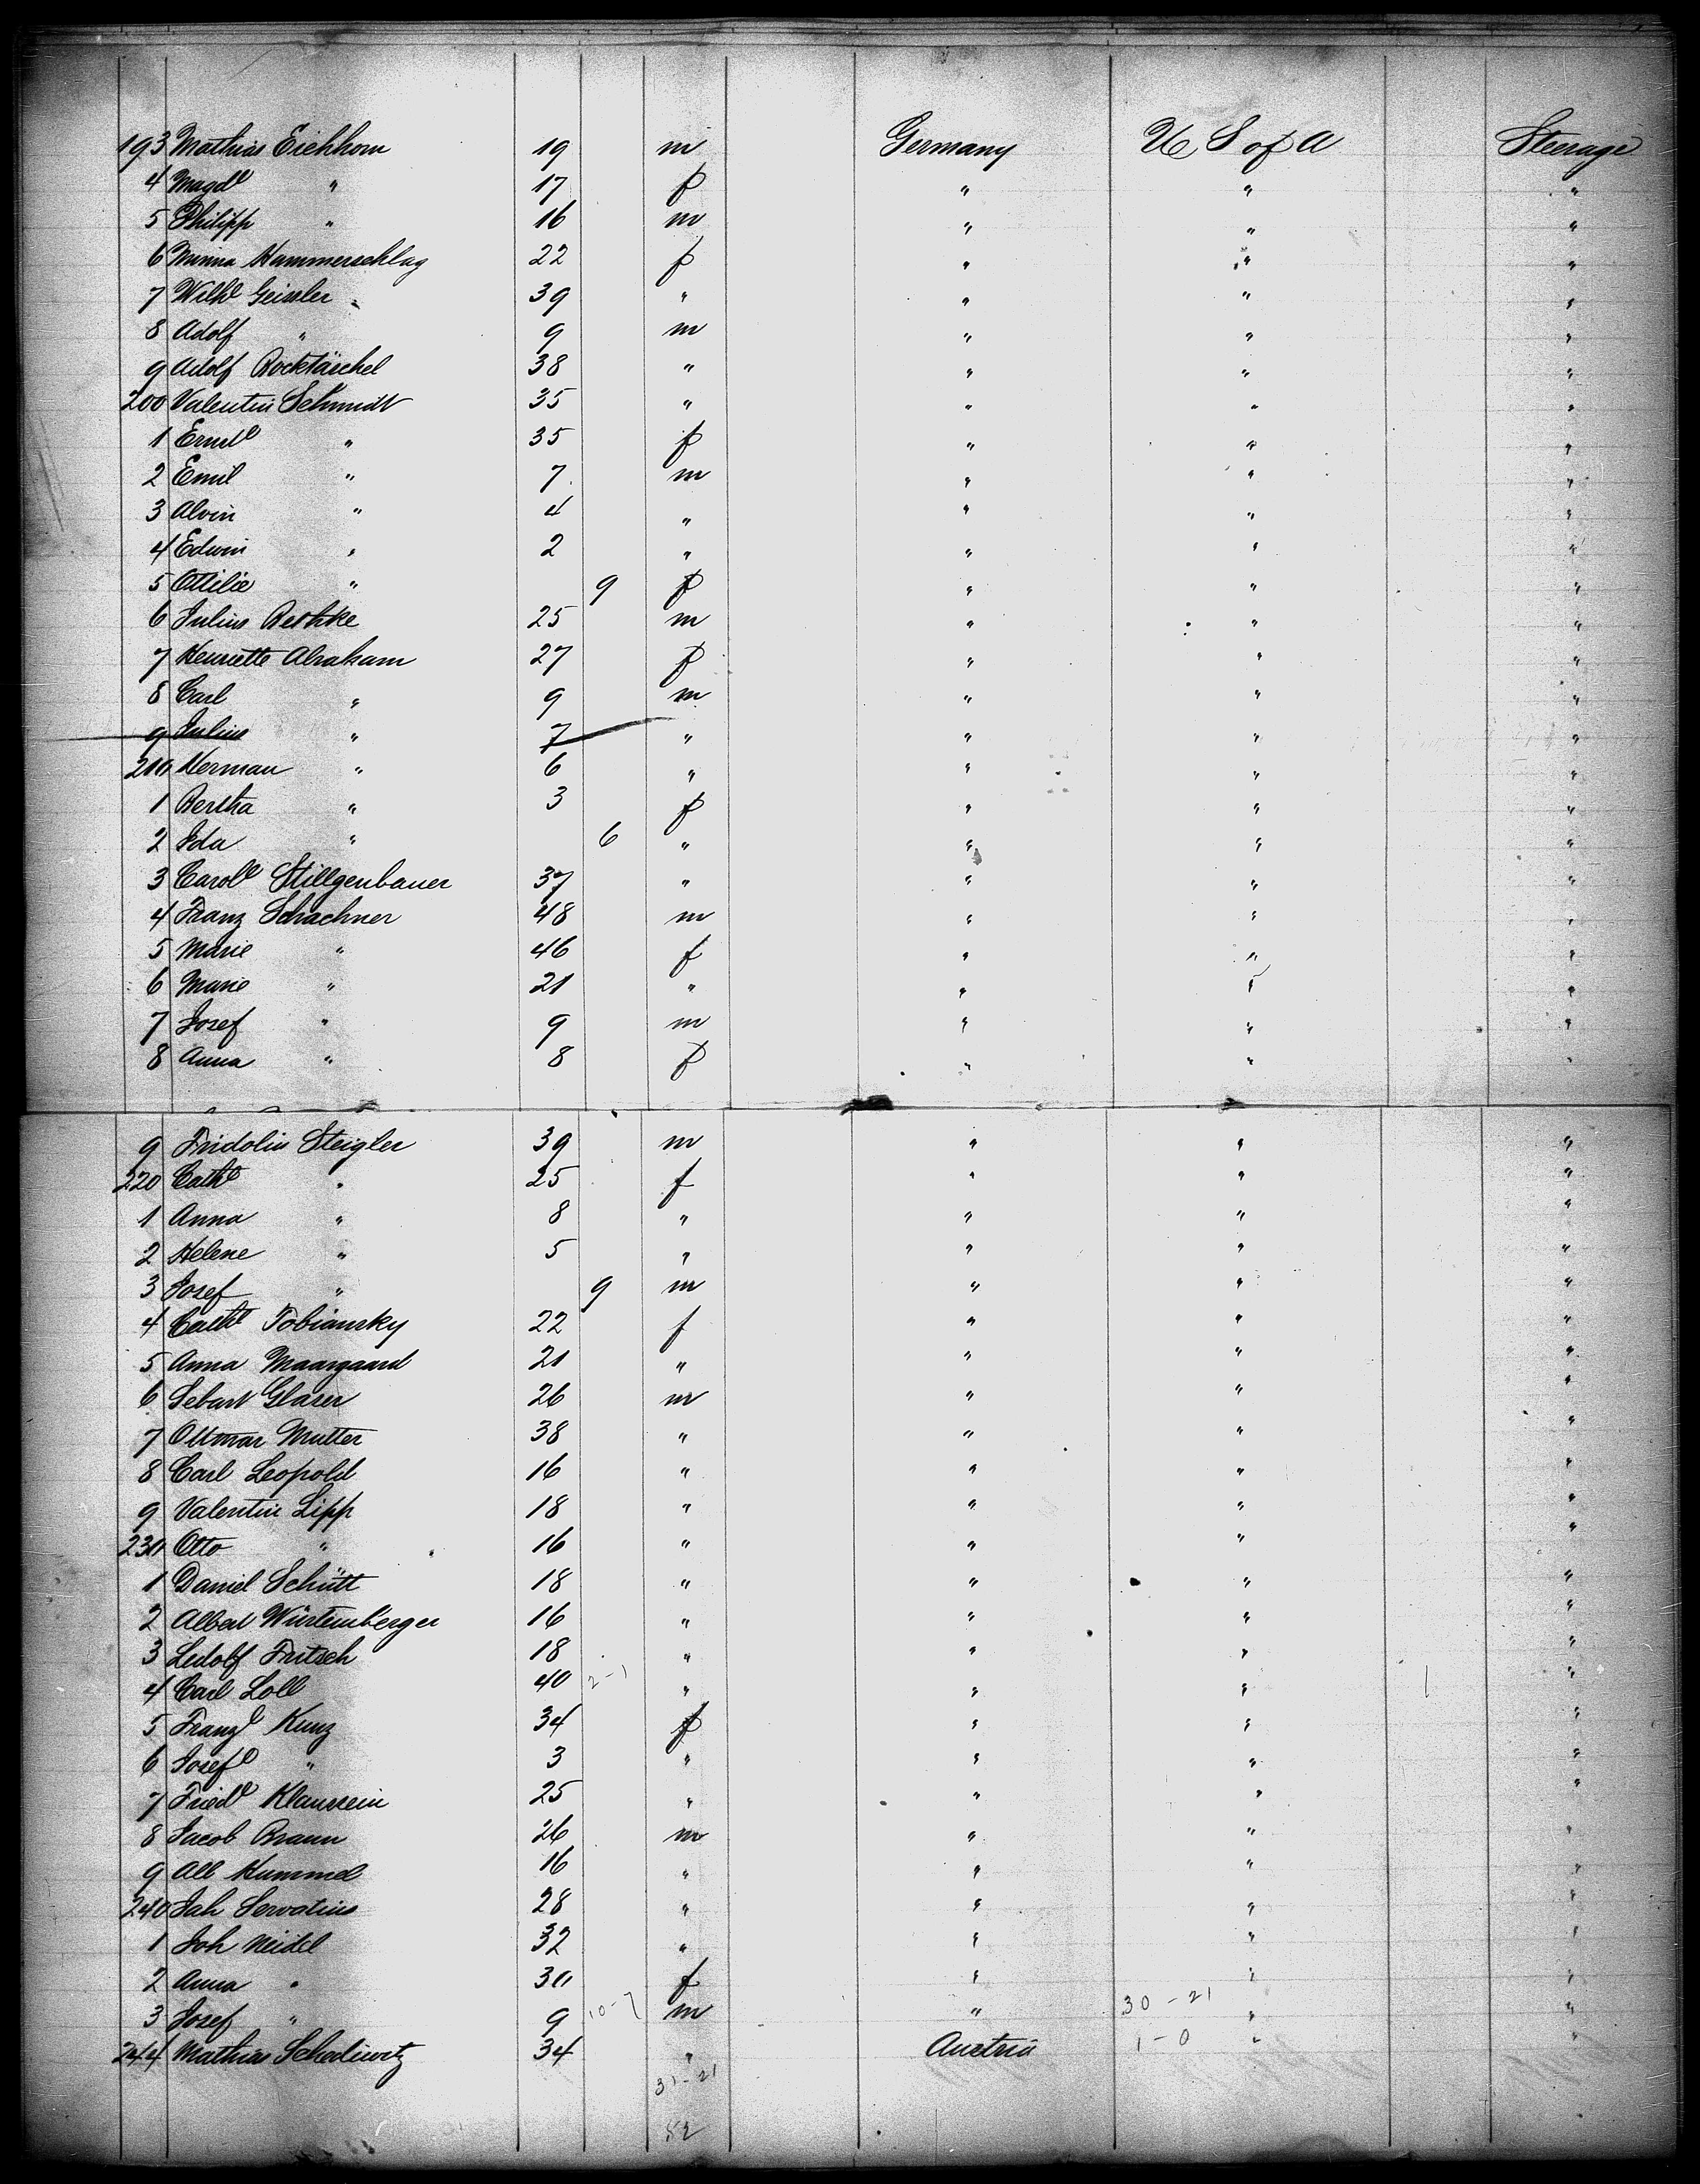 193 Mathias Eichhorn 19 m Germany U S of A Steerage
4 Magd " 17 f " " "
5 Philipp " 16 m " " "
6 Minna Hammerschlag 22 f " " "
7 Wilhe Geissler 39 " " " "
8 Adolf " 9 m " " "
9 Adolf Rocktäschel 38 " " " "
200 Valentin Schmidt 35 " " " "
1 Ernste " 35 f " " "
2 Emil " 7 m " " "
3 Alvin " 4 " " " "
4 Edwin " 2 " " " "
5 Ottilie " 9 f " " "
6 Julius Rethke 25 m " " "
7 Henriette Abraham 27 f " " "
8 Carl " 9 m " " "
9 Julius " 7 " " " "
210 Herman " 6 " " " "
1 Bertha " 3 f " " "
2 Ida " 6 " " " "
3 Carole Stillgenbauer 37 " " " "
4 Franz Schachner 48 m " " "
5 Marie " 46 f " " "
6 Marie " 21 " " " "
7 Josef " 9 m " " "
8 Anna " 8 f " " "
9 Fridolin Steigler 39 m " " "
220 Cathe " 25 f " " "
1 Anna " 8 " " " "
2 Helene " 5 " " " "
3 Josef " 9 m " " "
4 Cathe Tobiansky 22 f " " "
5 Anna Maargaard 21 " " " "
6 Sebast Glaser 26 m " " "
7 Ottmar Mutter 38 " " " "
8 Carl Leopold 16 " " " "
9 Valentin Lipp 18 " " " "
230 Otto " 16 " " " "
1 Daniel Schütt 18 " " " "
2 Albert Würtemberger 16 " " " "
3 Ludolf Fritsch 18 " " " "
4 Carl Loll 40 2-1 " " " "
5 Franze Kunz 34 f " " "
6 Josefe " 3 " " " "
7 Friede Klaussein 25 " " " "
8 Jacob Braun 26 m " " "
9 Alb Hummel 16 " " " "
240 Joh Servatius 28 " " " "
1 Joh Neidel 32 " " " "
2 Anna " 30 f " " "
3 Josef " 9 10-7 m " 30-21 " "
244 Mathias 34 " Austria 1-0 " "
31-21
52